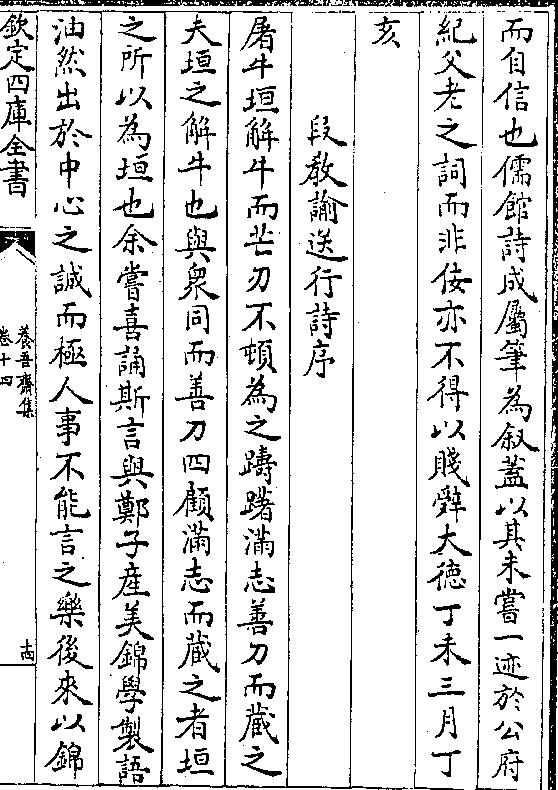 而自信也儒館詩成屬筆為叙蓋以其未嘗一迹於公府
紀父老之詞而非佞亦不得以賤辭大徳丁未三月丁
亥
段教諭送行詩序
屠牛垣解牛而芒刃不頓為之躊躇滿志善刀而藏之
夫垣之解牛也與衆同而善刀四顧滿志而藏之者垣
之所以為垣也余嘗喜誦斯言與鄭子産美錦學製語
油然出於中心之誠而極人事不能言之樂後來以錦
欽定四庫全書
養吾齋集
卷十四
十四